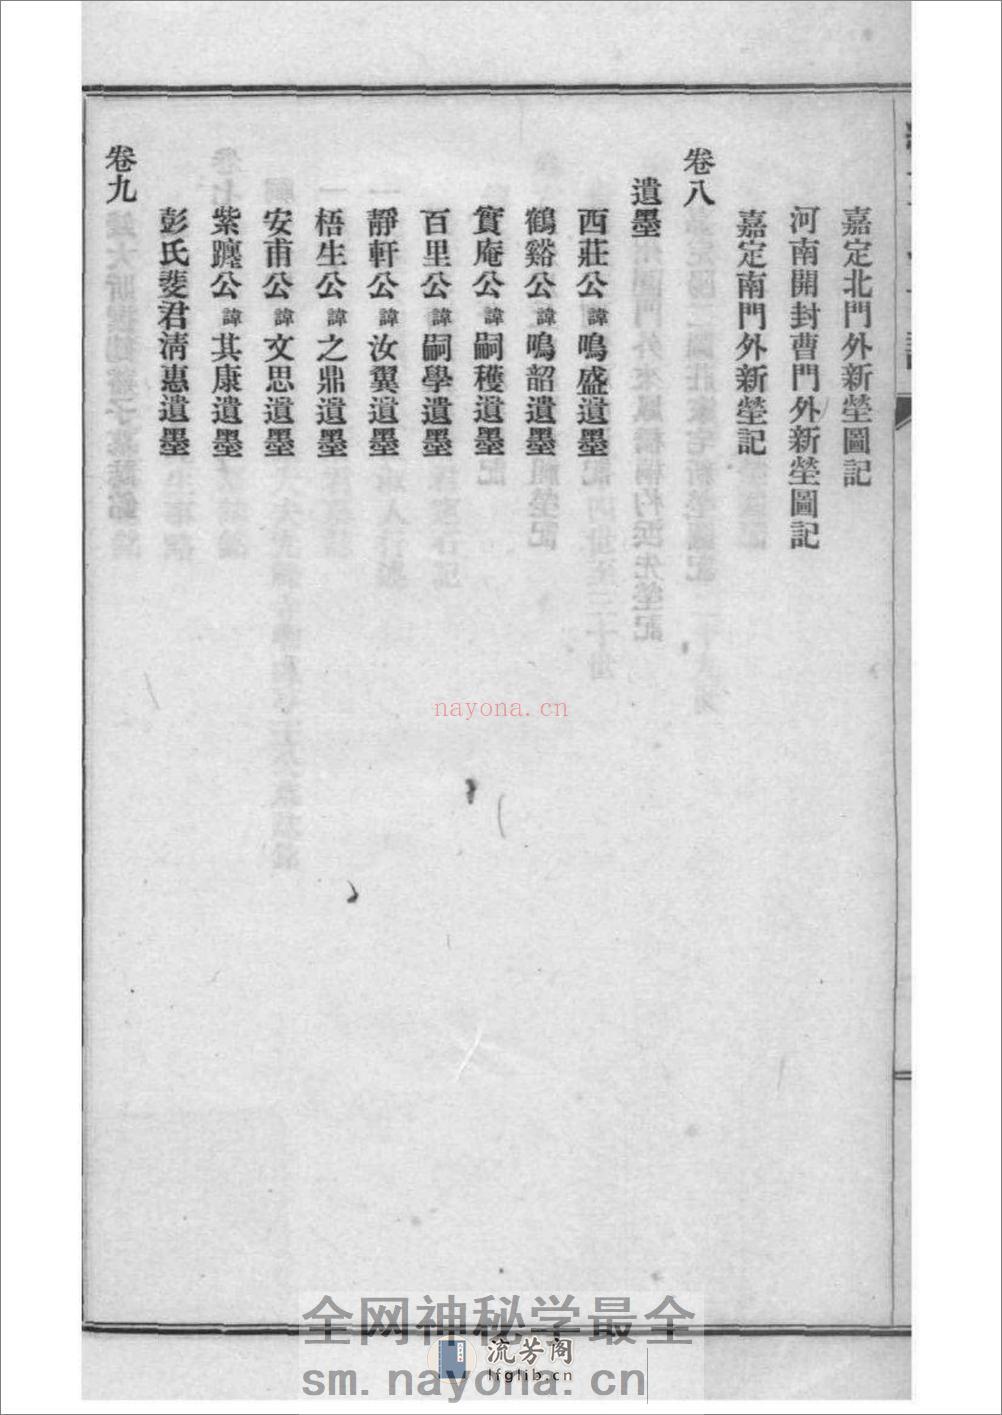 嘉定北門外新塋圖記
河南開封曹門外新塋圖記
嘉定南門外新塋記
卷八
遺墨
西莊公諱鳴盛遺墨
鶴谿公諱鳴韶遺墨
實庵公諱嗣穫遺墨
百里公諱嗣學遺墨
靜軒公諱汝翼遺墨
梧生公諱之鼎遺墨
安甫公諱文思遺墨
紫躔公諱其康遺墨
彭氏婓君淸惠遺墨
卷九
nayona.cn
全网神秘学最全
流芳阁
lfglib.cn
sm.nayona.cn